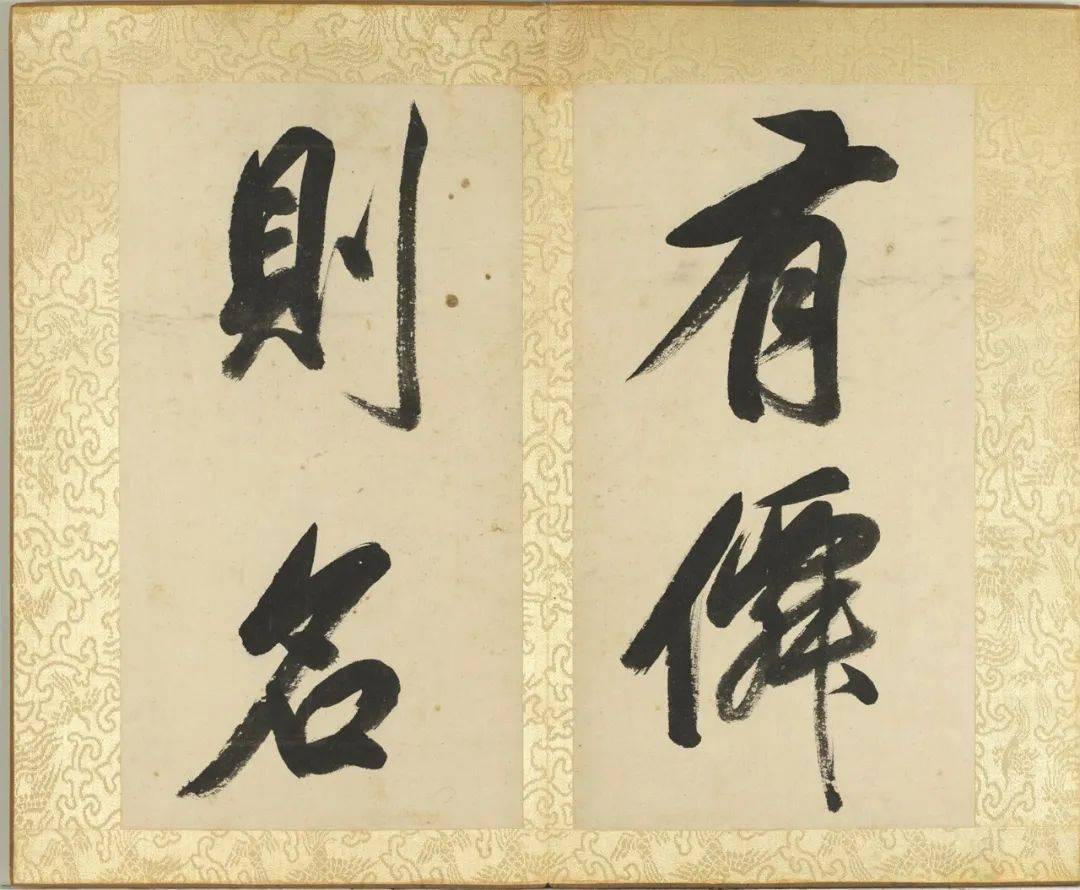 有僊
則名